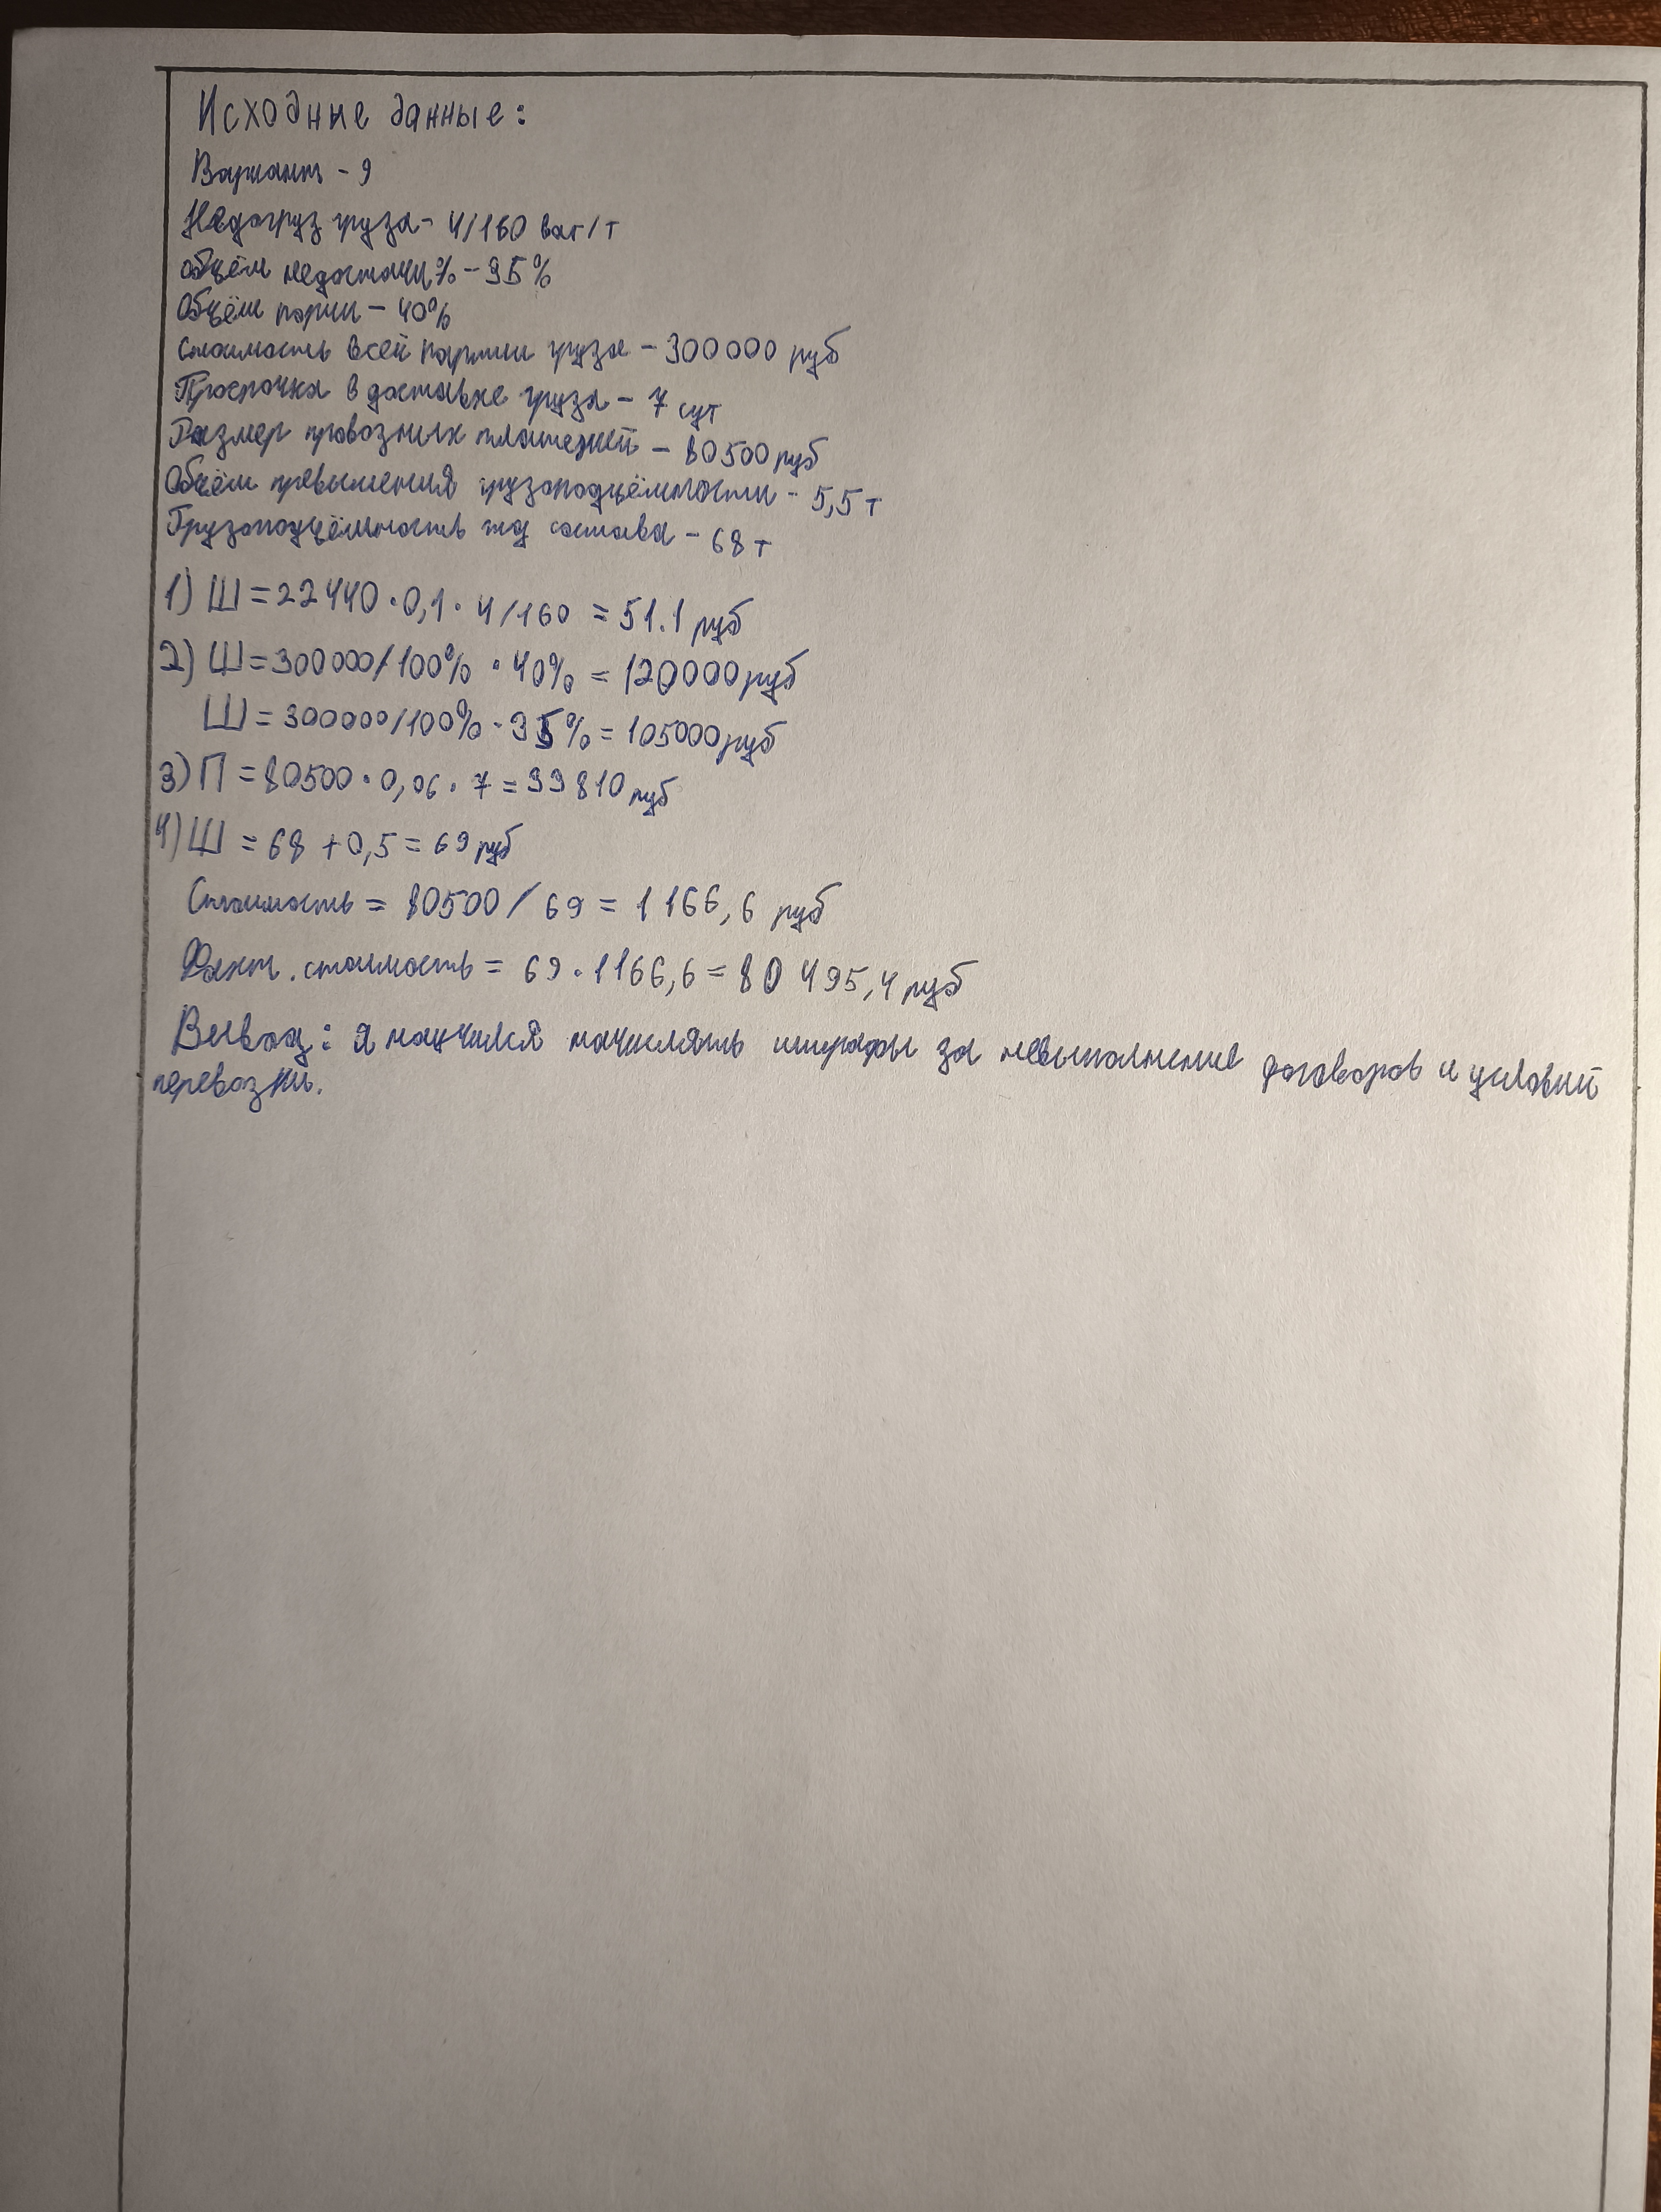 Исходные данные:
Вариант - 9
Недогруз груза - 4/160 ваг/т
объём недостачи % - 35%
Объём порчи - 40%
стоимость всей партии груза - 300000 руб
Просрочка в доставке груза - 7 сут
Размер провозных платежей - 80500 руб
Объём превышения грузоподъёмности - 5,5 т
Грузоподъёмность под состава - 68 т
1) Ш = 22440 · 0,1 · 4/160 = 51.1 руб
2) Ш = 300000/100% · 40% = 120000 руб
Ш = 300000/100% · 35% = 105000 руб
3) П = 80500 · 0,06 · 7 = 33810 руб
4) Ш = 68 + 0,5 = 69 руб
Стоимость = 80500 / 69 = 1166,6 руб
Факт. стоимость = 69 · 1166,6 = 80 495,4 руб
Вывод: я научился начислять штрафы за невыполнение договоров и условий
перевозки.